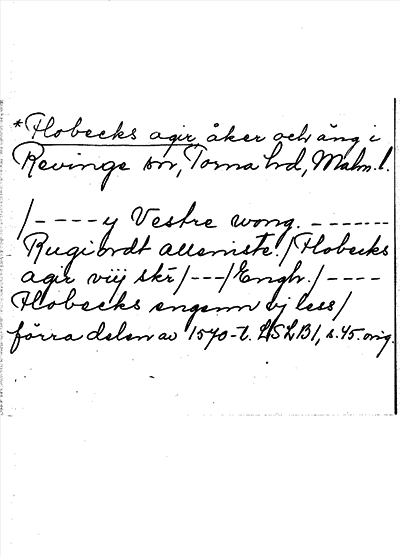 *Hobecks agir åker och äng i
Revinge sn, Torna hd, Malm. l.
/---- y Vestre wong. -------
Rugiordt allerniste./Hobecks
agir viij skr/---/Engh./----
Hobecks engenn vj less/
förra delen av 1570-t. LSLB1, s. 45. orig.